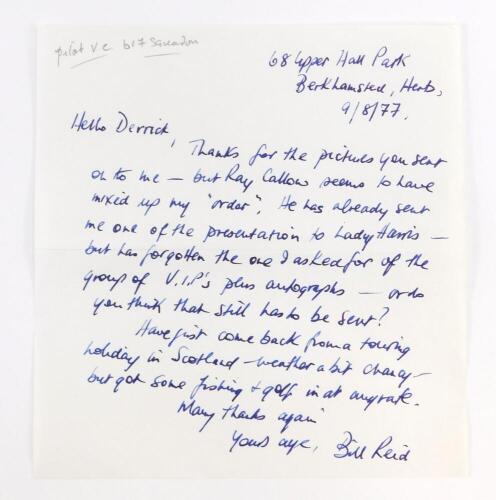 pilot V C 617 Squadron
68 Upper Hall Park
Berkhamsted, Herts,
9/8/77.
Hello Derrick,
Thanks for the pictures you sent
on to me – but Ray Callow seems to have
mixed up my "order". He has already sent
me one of the presentation to Lady Harris –
but has forgotten the one I asked for of the
group of V.I.P's plus autographs – or do
you think that still has to be sent?
Have just come back from a touring
holiday in Scotland – weather a bit chancy –
but got some fishing + golf in at anyrate.
Many thanks again
Yours aye, Bill Reid